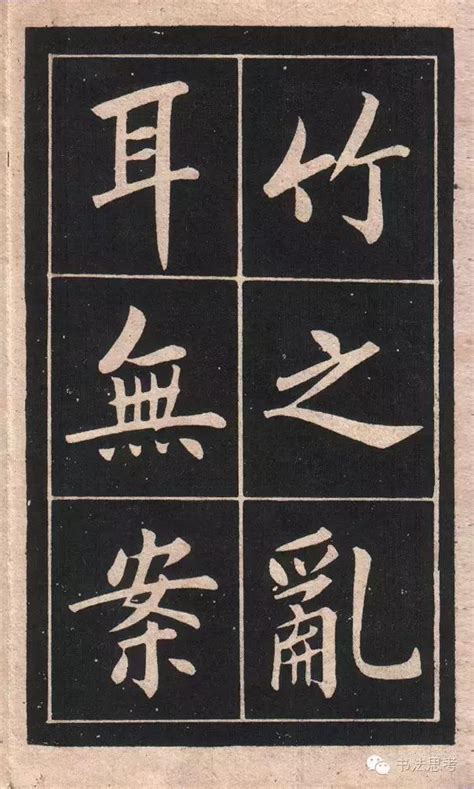 竹之亂
耳無案
书法思考